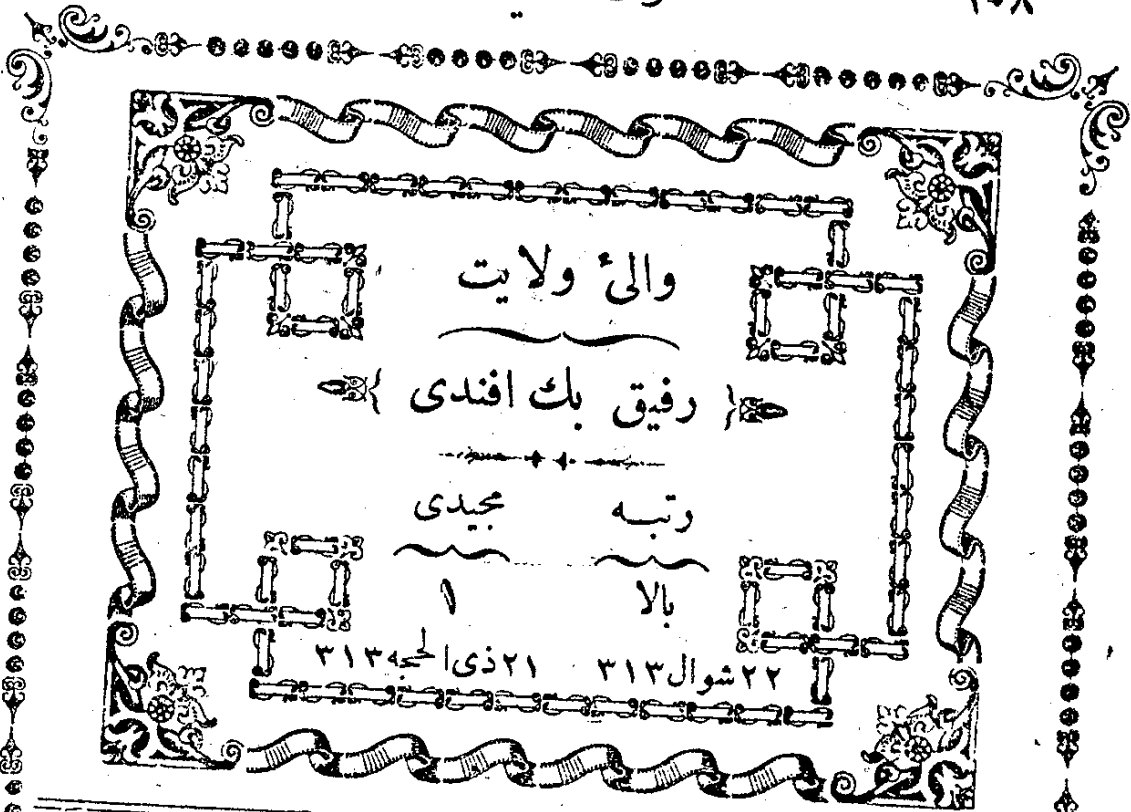 والئ ولايت
رفيق بك افندى
رتبه مجيدى
بالا ١
٢٢ شوال ٣١٣ ٢١ ذى الحجه ٣١٣